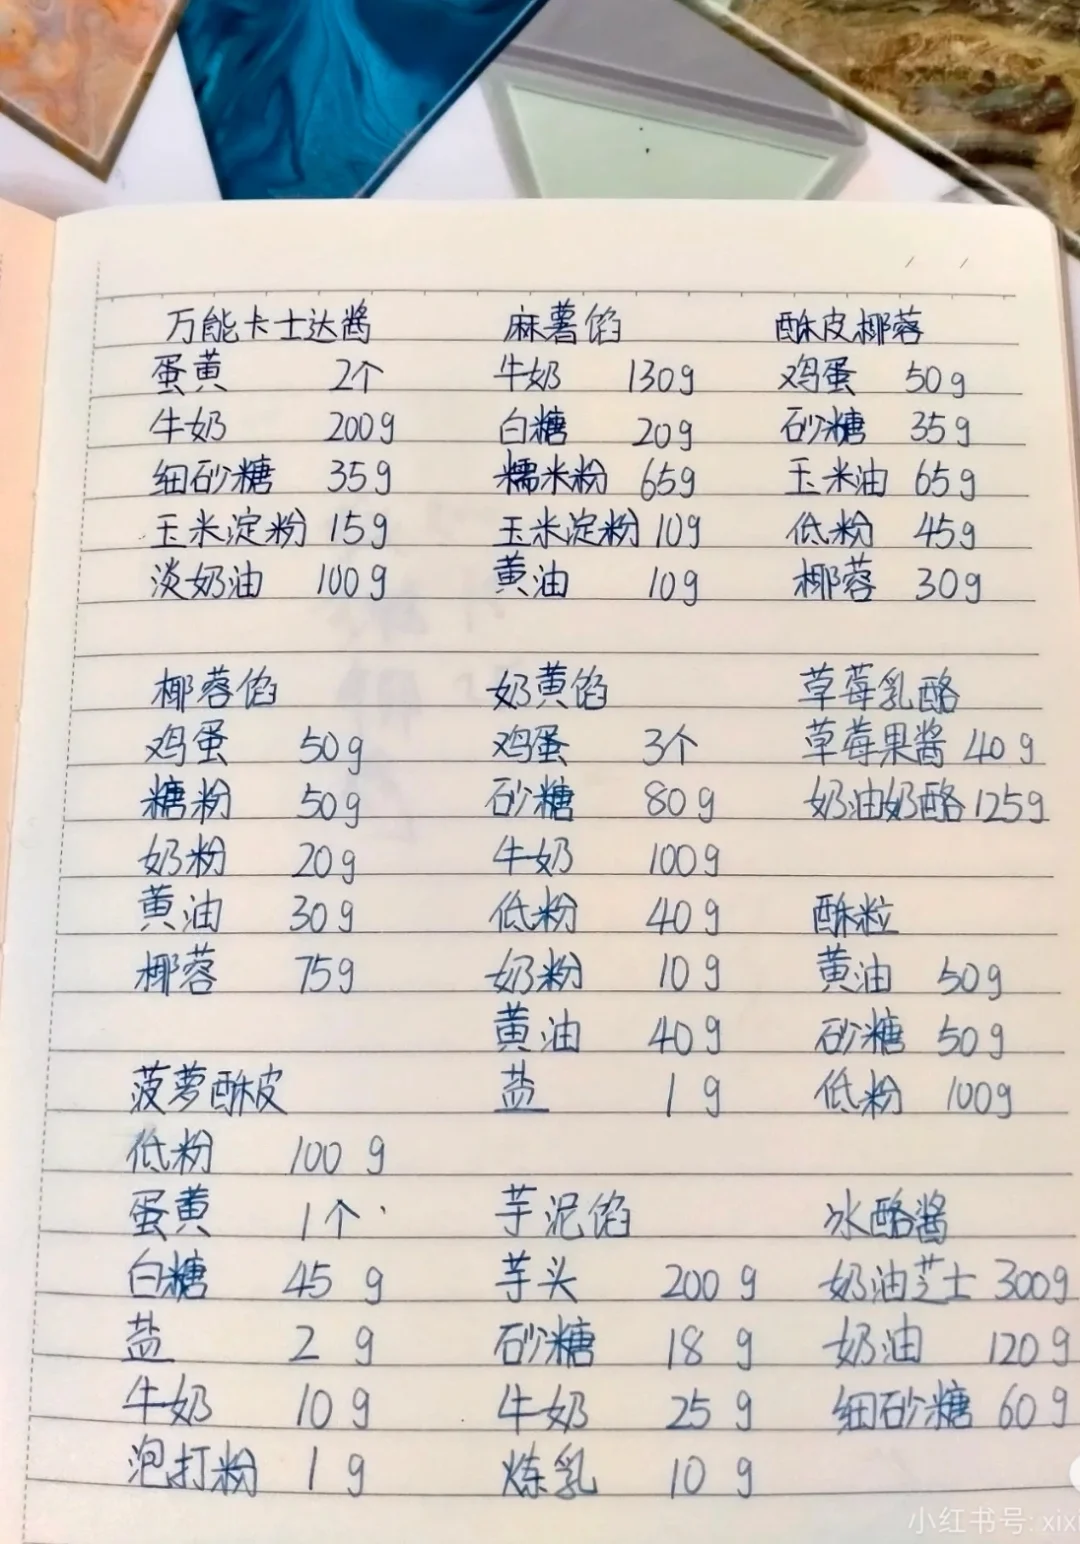 万能卡士达酱
蛋黄 2个
牛奶 200g
细砂糖 35g
玉米淀粉 15g
淡奶油 100g
麻薯馅
牛奶 130g
白糖 20g
糯米粉 65g
玉米淀粉 10g
黄油 10g
酥皮椰蓉
鸡蛋 50g
砂糖 35g
玉米油 65g
低粉 45g
椰蓉 30g
椰蓉馅
鸡蛋 50g
糖粉 50g
奶粉 20g
黄油 30g
椰蓉 75g
奶黄馅
鸡蛋 3个
砂糖 80g
牛奶 100g
低粉 40g
奶粉 10g
黄油 40g
盐 1g
草莓乳酪
草莓果酱 40g
奶油奶酪 125g
酥粒
黄油 50g
砂糖 50g
低粉 100g
菠萝酥皮
低粉 100g
蛋黄 1个
白糖 45g
盐 2g
牛奶 10g
泡打粉 1g
芋泥馅
芋头 200g
砂糖 18g
牛奶 25g
炼乳 10g
冰酪酱
奶油芝士 300g
奶油 120g
细砂糖 60g
小红书号: xixi